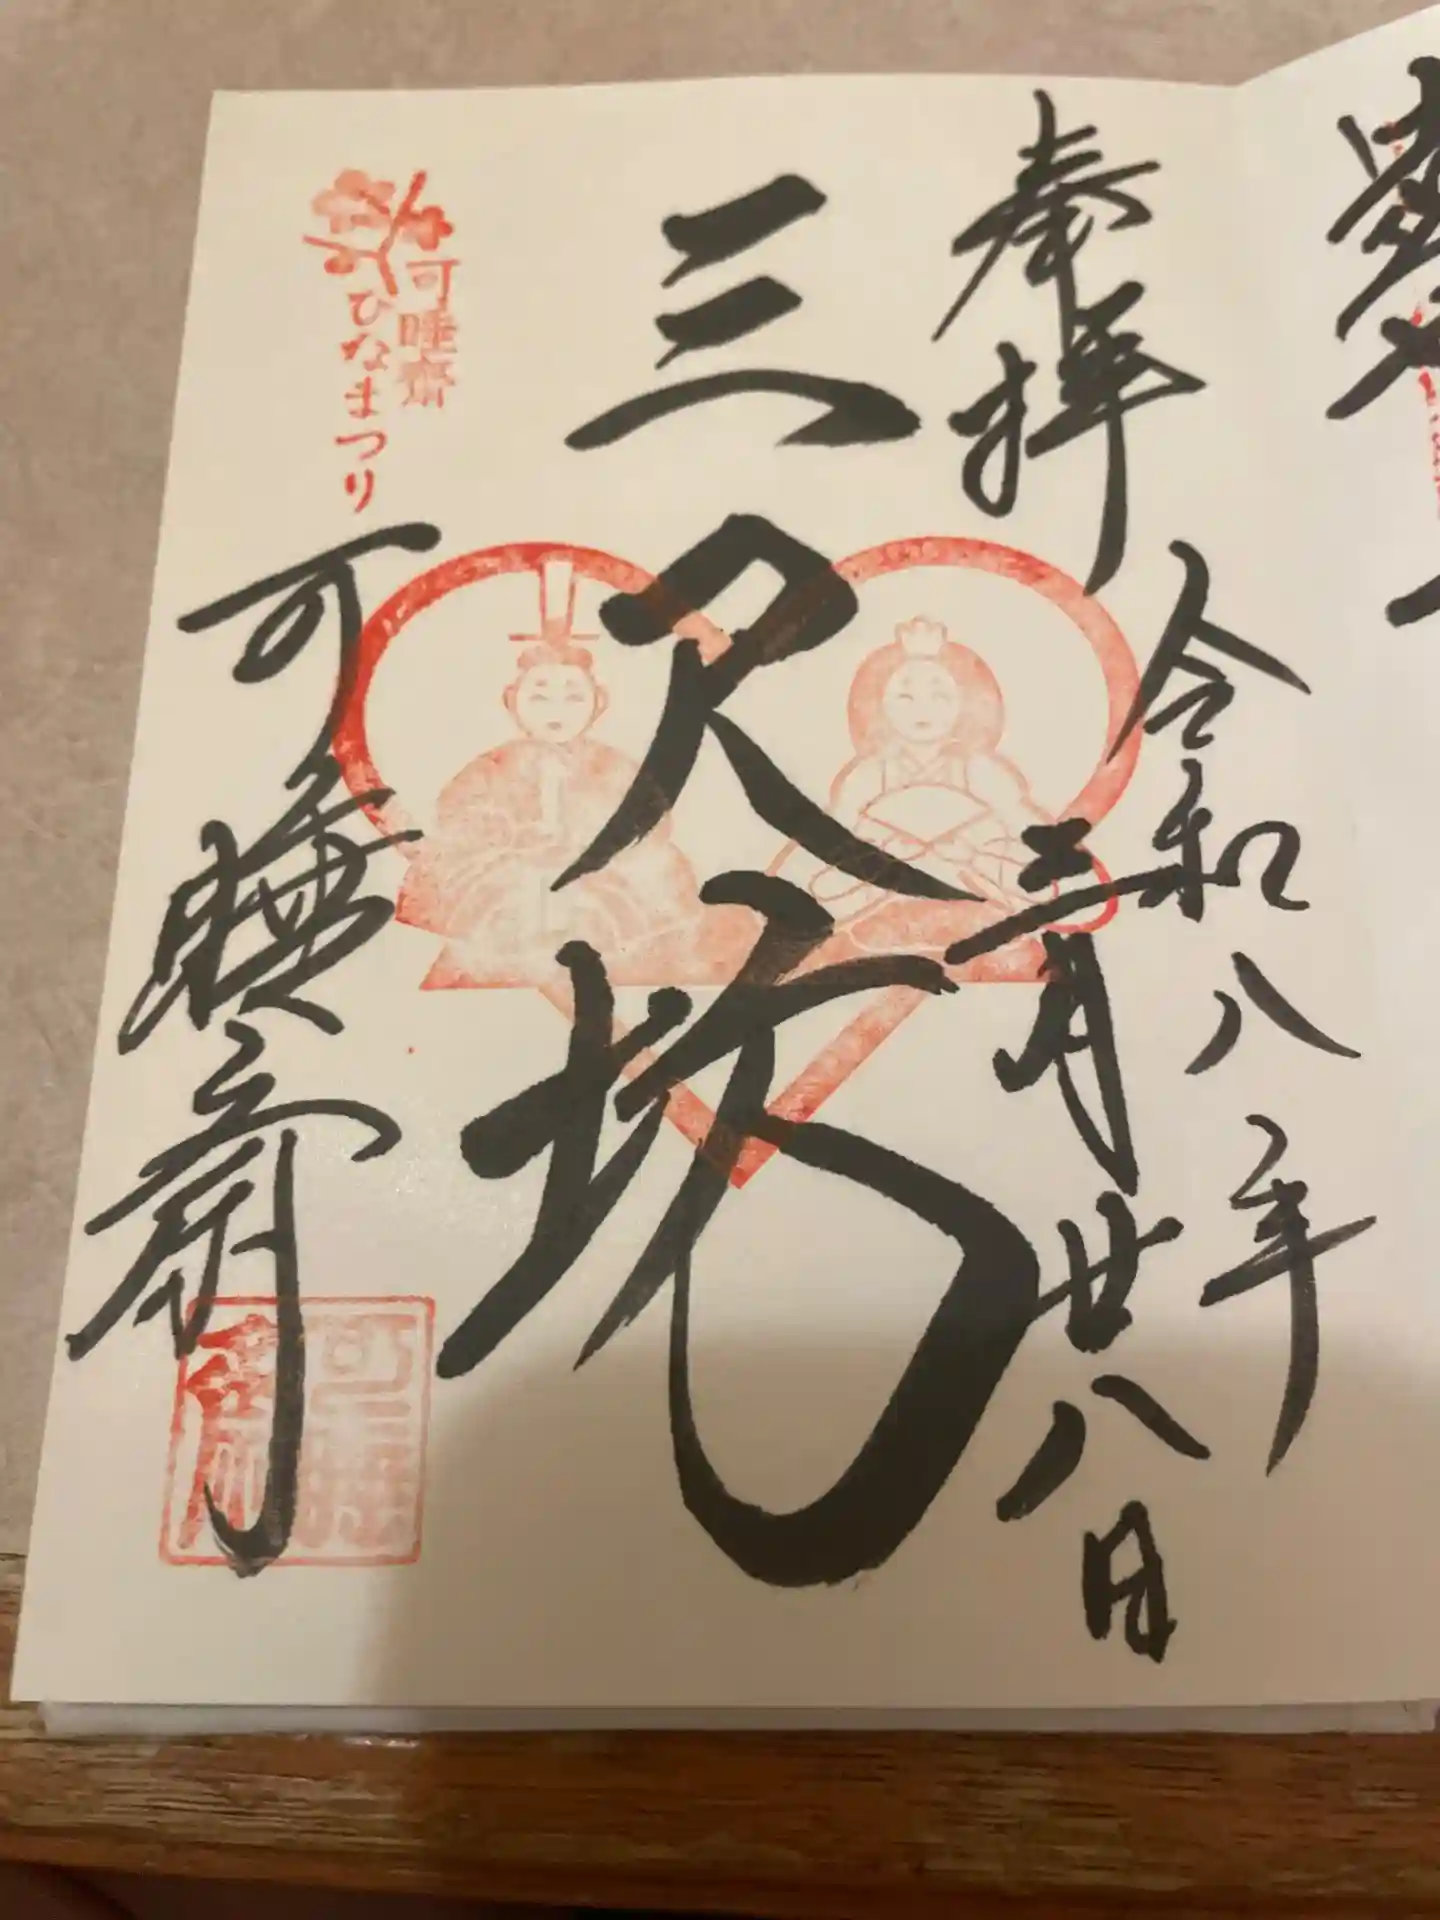 奉拝
令和八年
三月廿八日
三尺坊
可睡齋
ひなまつり
可睡斎